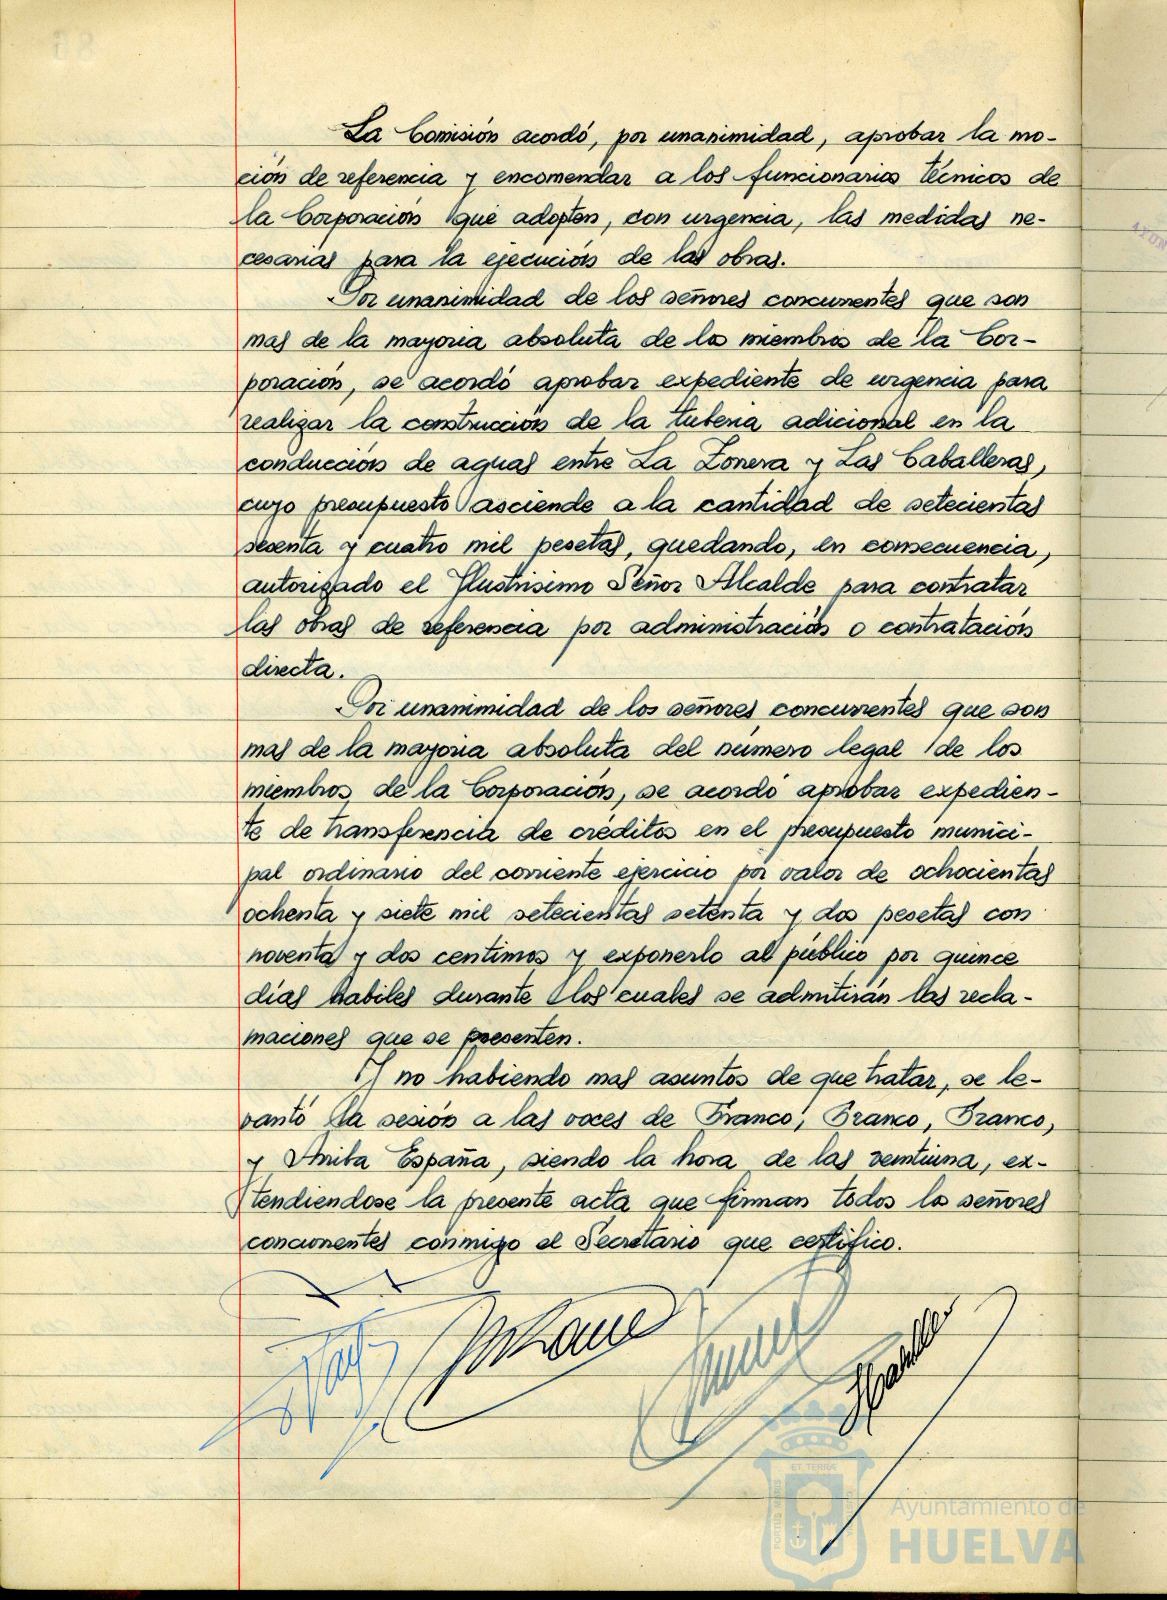 La Comisión acordó, por unanimidad, aprobar la mo-
ción de referencia y encomendar a los funcionarios técnicos de
la Corporación que adopten, con urgencia, las medidas ne-
cesarias para la ejecución de las obras.
Por unanimidad de los señores concurrentes que son
mas de la mayoria absoluta de los miembros de la Cor-
poración, se acordó aprobar expediente de urgencia para
realizar la construcción de la tuberia adicional en la
conducción de aguas entre La Zorrera y Las Caballeras,
cuyo presupuesto asciende a la cantidad de setecientas
sesenta y cuatro mil pesetas, quedando, en consecuencia,
autorizado el Ilustrisimo Señor Alcalde para contratar
las obras de referencia por administración o contratación
directa.
Por unanimidad de los señores concurrentes que son
mas de la mayoria absoluta del número legal de los
miembros de la Corporación, se acordó aprobar expedien-
te de transferencia de créditos en el presupuesto munici-
pal ordinario del corriente ejercicio por valor de ochocientas
ochenta y siete mil setecientas setenta y dos pesetas con
noventa y dos centimos y exponerlo al público por quince
días habiles durante los cuales se admitirán las recla-
maciones que se presenten.
Y no habiendo mas asuntos de que tratar, se le-
vantó la sesión a las voces de Franco, Franco, Franco,
y Arriba España, siendo la hora de las veintiuna, ex-
tendiendose la presente acta que firman todos los señores
concurrentes conmigo el Secretario que certifico.
ET TERRA
Ayuntamiento de
HUELVA